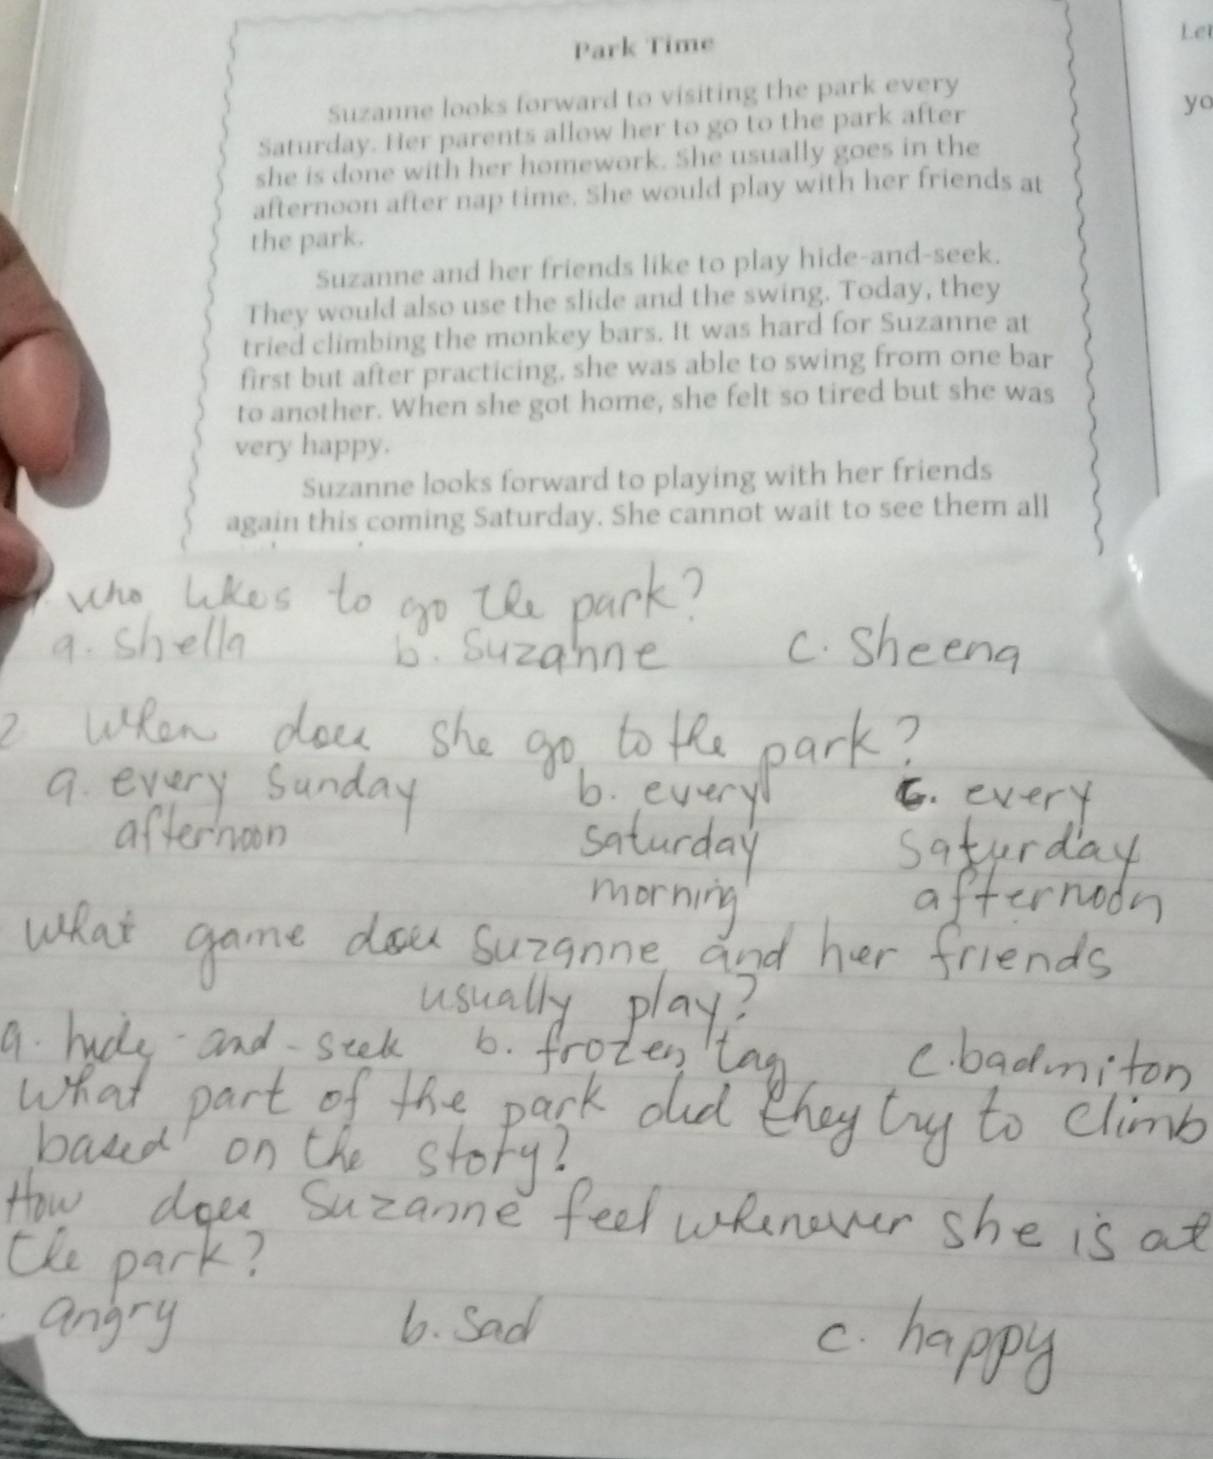 Park Time
Suzanne looks forward to visiting the park every
Saturday. Her parents allow her to go to the park after
she is done with her homework. She usually goes in the
afternoon after nap time. She would play with her friends at
the park.
Suzanne and her friends like to play hide-and-seek.
They would also use the slide and the swing. Today, they
tried climbing the monkey bars. It was hard for Suzanne at
first but after practicing, she was able to swing from one bar
to another. When she got home, she felt so tired but she was
very happy.
Suzanne looks forward to playing with her friends
again this coming Saturday. She cannot wait to see them all
who likes to go the park?
a. Shella b. Suzanne c. Sheena
2 When does she go to the park?
a. every Sunday b. every c. every
afternoon saturday Saturday
morning afternoon
What game does Suzanne and her friends
usually play?
a. hide-and-seek b. frozen tag c. badmiton
What part of the park did they try to climb
based on the story?
How does Suzanne feel whenever she is at
the park?
angry b. Sad c. happy
yo